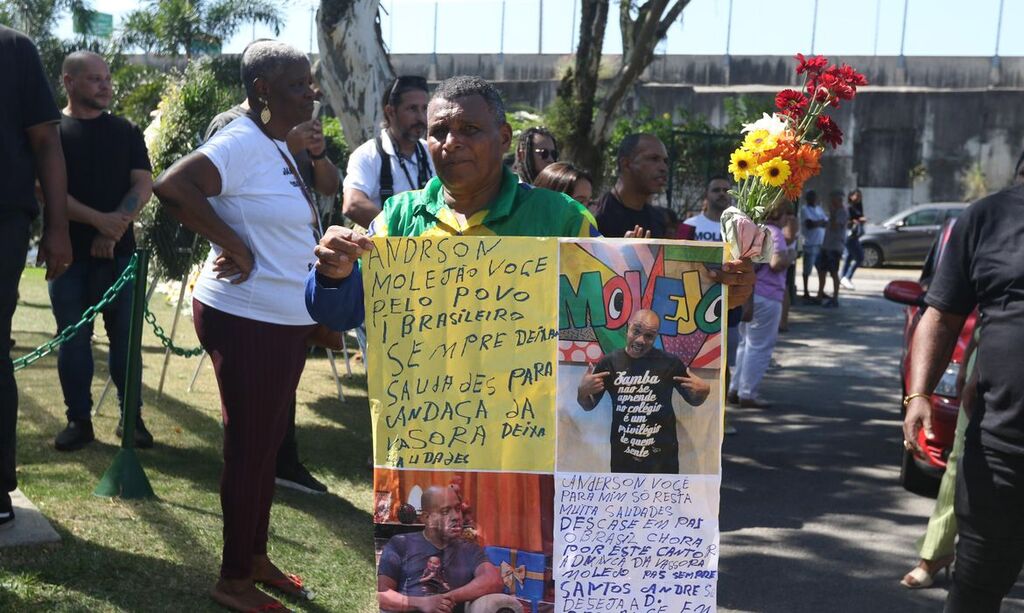 ANDRSON
MOLEJÃO VOCE
PELO POVO
BRASILEIRO
SEMPRE DEIXA
SAUDADES PARA
DANDAÇA DA
VASORA DEIXA
SAUDADES
MOLEJO
Samba
não se
aprende
no colégio
é um
privilégio
de quem
sente
ANDERSON VOCE
PARA MIM SÓ RESTA
MUITA SAUDADES
DESCASE EM PAS
O BRASIL CHORA
POR ESTE CANTOR
ADMNCA DA VASSORA
MOLEJO PAS SEMPRE
SANTOS ANDRE SI
DESEJA A D.
EM
MOL